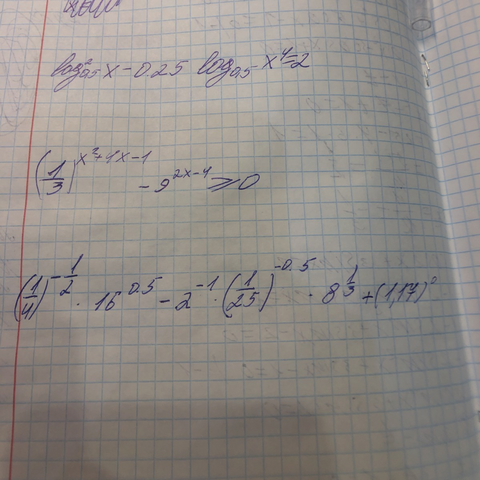 log²₀,₅x - 0.25 log₀,₅x⁴=2
(1/3)^(x²+4x-1) - 9^(2x-4) ⩾ 0
(1/4)^(-1/2) · 16^(0.5) - 2^(-1) · (1/25)^(-0.5) · 8^(1/3) + (1,17)⁰